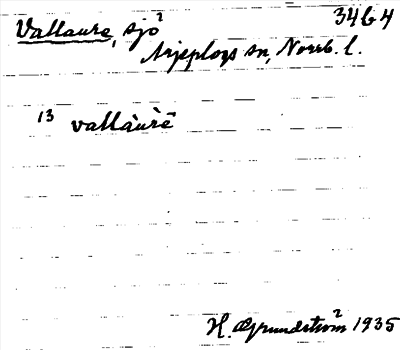 Vallaure, sjö² 34G4
Arjeplogs sn, Norrb. l.
13 vallàùrē
H. Grundström² 1935